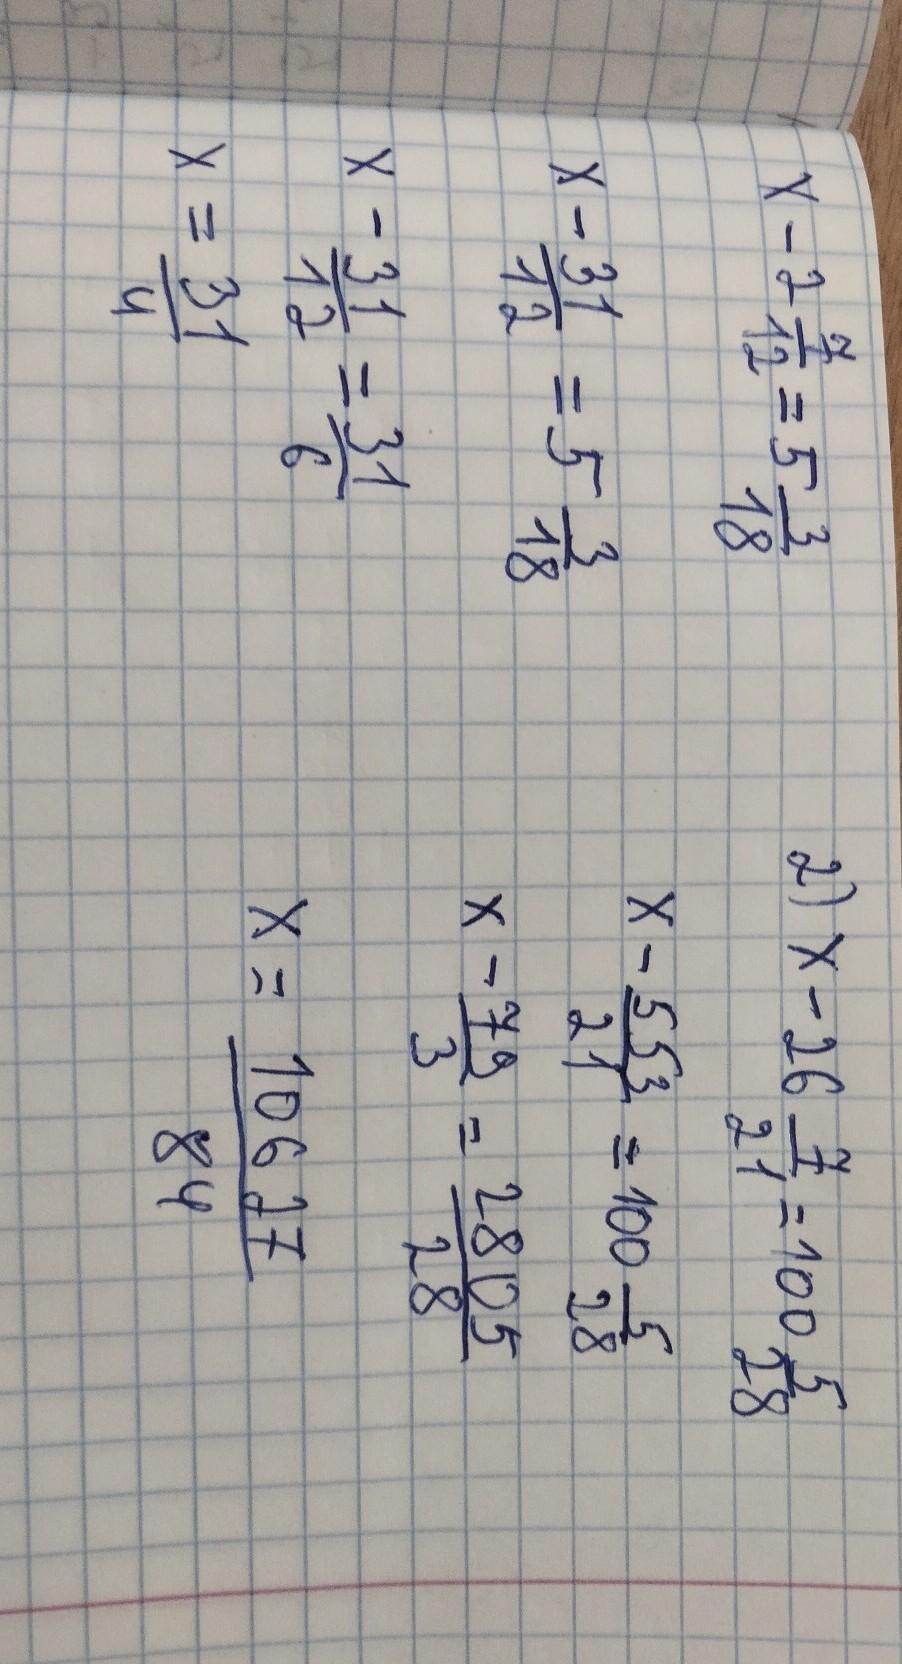 x - 2 7/12 = 5 3/18
x - 31/12 = 5 3/18
x - 31/12 = 31/6
x = 31/4
2) x - 26 7/21 = 100 5/28
x - 553/21 = 100 5/28
x - 79/3 = 2805/28
x = 10627/84